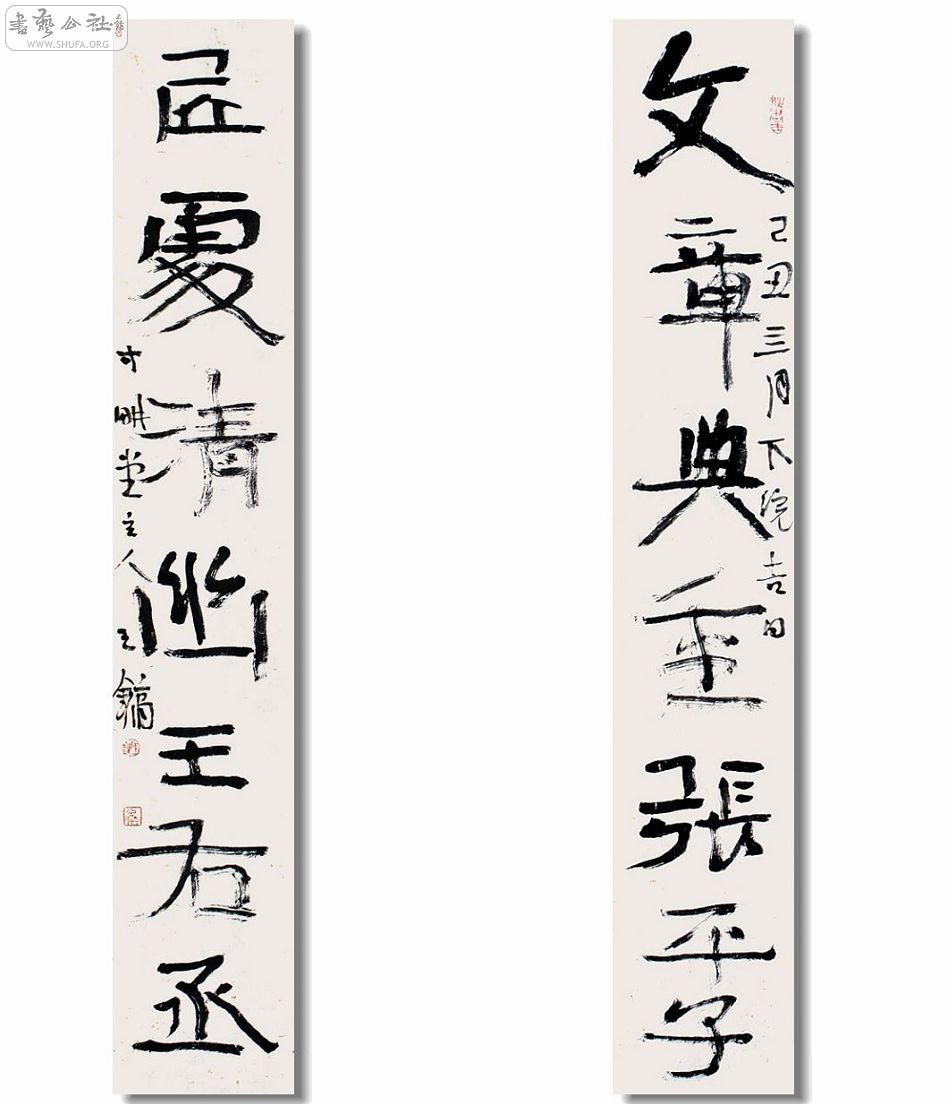 書藝公社
WWW.SHUFA.ORG
文章典重張平子
己丑三月下浣吉日
居處清幽王右丞
寸畊堂主人王鏞